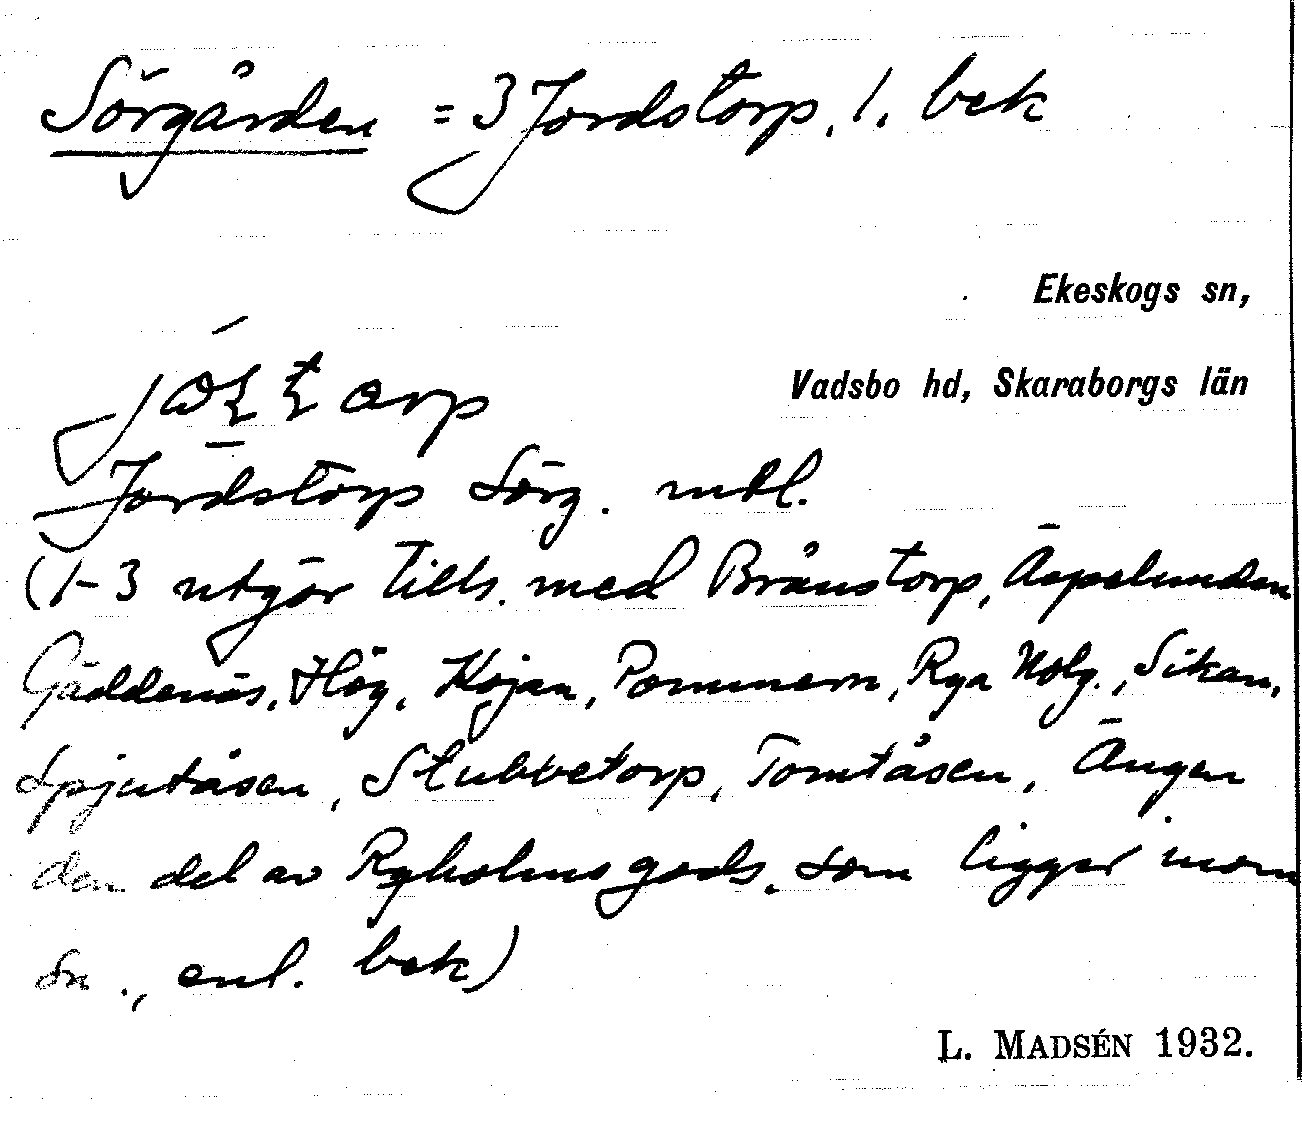 Sörgården = 3 Jordstorp, 1. bek
Ekeskogs sn,
Vadsbo hd, Skaraborgs län
Jordstorps Sörg. mtl.
(1-3 utgör tills. med Brånstorp, Äspelunden
Gäddenäs, Hög, Kojan, Pommern, Rya Nolg., Sikan,
Spjutåsen, Stubbetorp, Tomtåsen, Ängen
den del av Ryholms gods, som ligger inom
sn., enl. bek)
L. MADSÉN 1932.